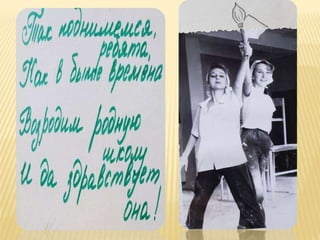 Так поднимемся,
ребята,
Как в былые времена
Возродим родную
школу
И да здравствует
она!